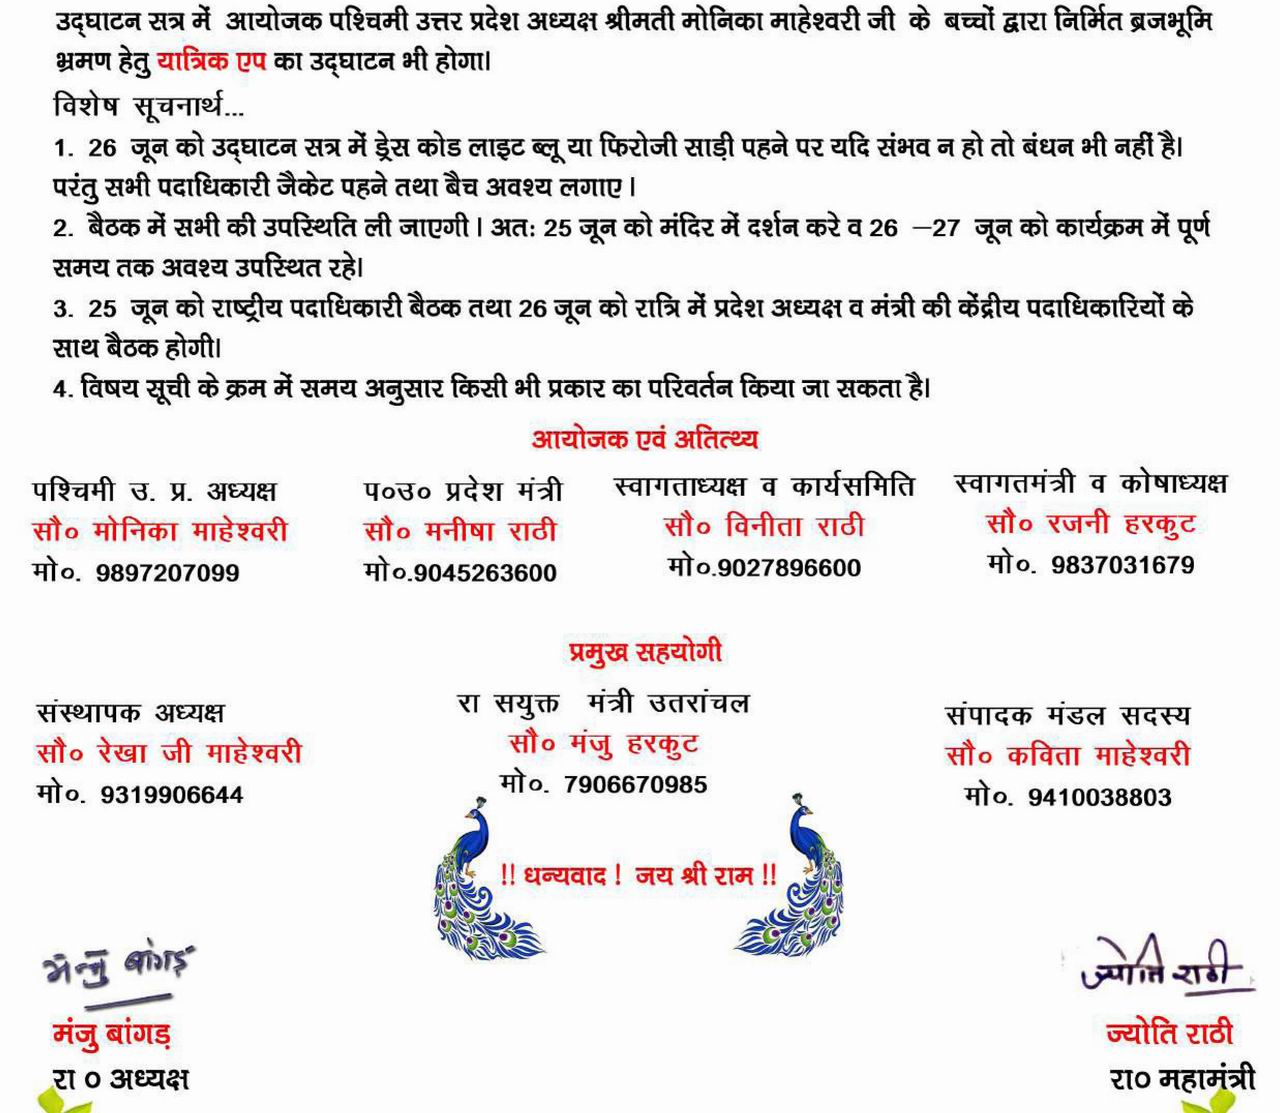 उद्घाटन सत्र में आयोजक पश्चिमी उत्तर प्रदेश अध्यक्ष श्रीमती मोनिका माहेश्वरी जी के बच्चों द्वारा निर्मित ब्रजभूमि
भ्रमण हेतु यात्रिक एप का उद्घाटन भी होगा।
विशेष सूचनार्थ...
1. 26 जून को उद्घाटन सत्र में ड्रेस कोड लाइट ब्लू या फिरोजी साड़ी पहने पर यदि संभव न हो तो बंधन भी नहीं है।
परंतु सभी पदाधिकारी जैकेट पहने तथा बैच अवश्य लगाए।
2. बैठक में सभी की उपस्थिति ली जाएगी। अत: 25 जून को मंदिर में दर्शन करे व 26 –27 जून को कार्यक्रम में पूर्ण
समय तक अवश्य उपस्थित रहे।
3. 25 जून को राष्ट्रीय पदाधिकारी बैठक तथा 26 जून को रात्रि में प्रदेश अध्यक्ष व मंत्री की केंद्रीय पदाधिकारियों के
साथ बैठक होगी।
4. विषय सूची के क्रम में समय अनुसार किसी भी प्रकार का परिवर्तन किया जा सकता है।
आयोजक एवं अतित्थ्य
पश्चिमी उ. प्र. अध्यक्ष प०उ० प्रदेश मंत्री स्वागताध्यक्ष व कार्यसमिति स्वागतमंत्री व कोषाध्यक्ष
सौ० मोनिका माहेश्वरी सौ० मनीषा राठी सौ० विनीता राठी सौ० रजनी हरकुट
मो०. 9897207099 मो०.9045263600 मो०.9027896600 मो०. 9837031679
प्रमुख सहयोगी
संस्थापक अध्यक्ष रा सयुक्त मंत्री उतरांचल संपादक मंडल सदस्य
सौ० रेखा जी माहेश्वरी सौ० मंजु हरकुट सौ० कविता माहेश्वरी
मो०. 9319906644 मो०. 7906670985 मो०. 9410038803
!! धन्यवाद ! जय श्री राम !!
मंजु बांगड़ ज्योति राठी
मंजु बांगड़ ज्योति राठी
रा ० अध्यक्ष रा० महामंत्री